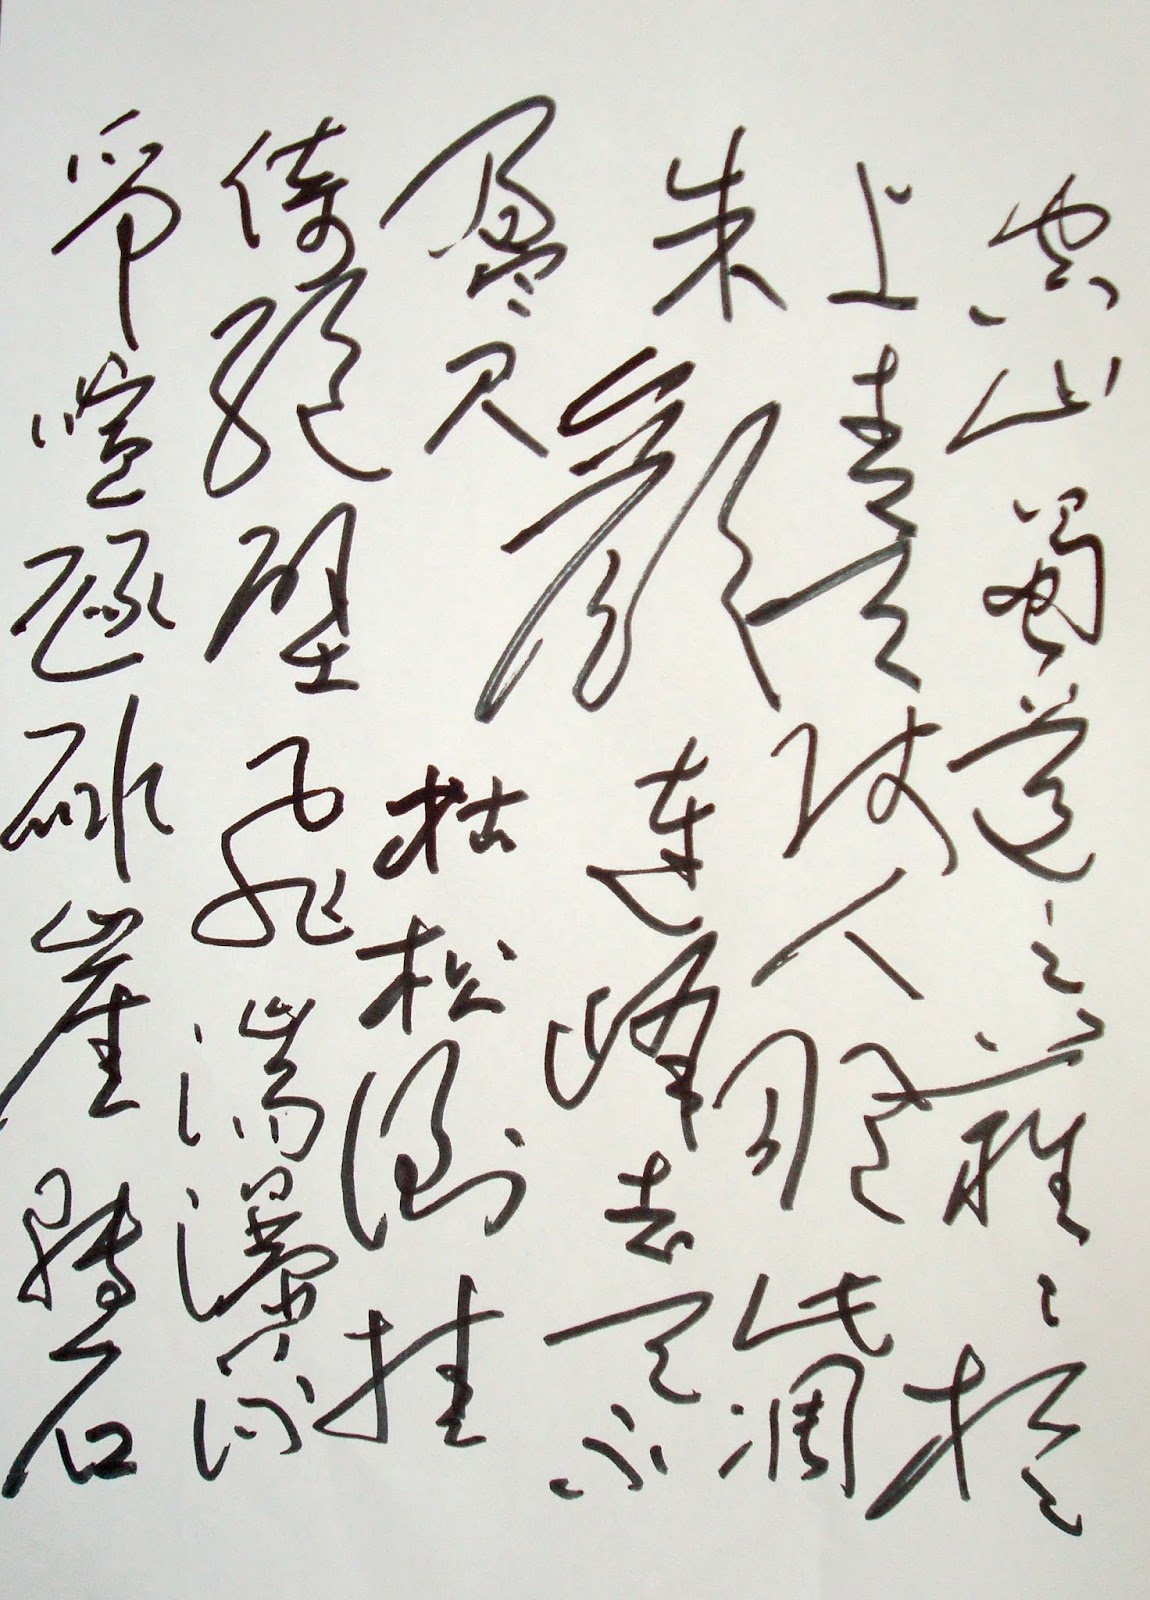 空山蜀道之難難於
上青天使人聽此凋
朱顏連峰去天不
盈尺枯松倒挂
倚絕壁飛湍瀑流
爭喧豗砯崖轉石